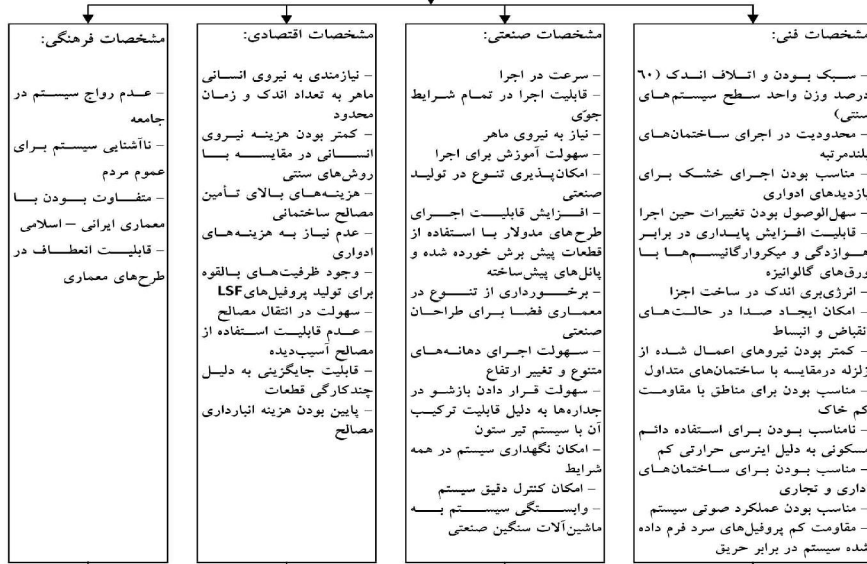 مشخصات فنی:
– سبک بودن و اتلاف اندک (۶۰
درصد وزن واحد سطح سیستم‌های
سنتی)
– محدودیت در اجرای ساختمان‌های
بلندمرتبه
– مناسب بودن اجرای خشک برای
بازدیدهای ادواری
– سهل‌الوصول بودن تغییرات حین اجرا
– قابلیت افزایش پایداری در برابر
هوازدگی و میکروارگانیسم‌ها با
ورق‌های گالوانیزه
– انرژی‌بری اندک در ساخت اجزا
– امکان ایجاد صدا در حالت‌های
نقباض و انبساط
– کمتر بودن نیروهای اعمال شده از
زلزله درمقایسه با ساختمان‌های متداول
– مناسب بودن برای مناطق با مقاومت
کم خاک
– نامناسب بودن برای استفاده دائم
مسکونی به دلیل اینرسی حرارتی کم
– مناسب بودن برای ساختمان‌های
داری و تجاری
– مناسب بودن عملکرد صوتی سیستم
– مقاومت کم پروفیل‌های سرد فرم داده
شده سیستم در برابر حریق
مشخصات صنعتی:
– سرعت در اجرا
– قابلیت اجرا در تمام شرایط
جوّی
– نیاز به نیروی ماهر
– سهولت آموزش برای اجرا
– امکان‌پذیری تنوع در تولید
صنعتی
– افزایش قابلیت اجرای
طرح‌های مدولار با استفاده از
قطعات پیش برش خورده شده و
پانل‌های پیش‌ساخته
– برخورداری از تنوع در
معماری فضا برای طراحان
صنعتی
– سهولت اجرای دهانه‌های
متنوع و تغییر ارتفاع
– سهولت قرار دادن بازشو در
جداره‌ها به دلیل قابلیت ترکیب
آن با سیستم تیر ستون
– امکان نگهداری سیستم در همه
شرایط
– امکان کنترل دقیق سیستم
– وابستگی سیستم به
ماشین‌آلات سنگین صنعتی
مشخصات اقتصادی:
– نیازمندی به نیروی انسانی
ماهر به تعداد اندک و زمان
محدود
– کمتر بودن هزینه نیروی
انسانی در مقایسه با
روش‌های سنتی
– هزینه‌های بالای تأمین
مصالح ساختمانی
– عدم نیاز به هزینه‌های
ادواری
– وجود ظرفیت‌های بالقوه
برای تولید پروفیل‌های LSF
– سهولت در انتقال مصالح
– عدم قابلیت استفاده از
مصالح آسیب‌دیده
– قابلیت جایگزینی به دلیل
چندکارگی قطعات
– پایین بودن هزینه انبارداری
مصالح
مشخصات فرهنگی:
– عدم رواج سیستم در
جامعه
– ناآشنایی سیستم برای
عموم مردم
– متفاوت بودن با
معماری ایرانی – اسلامی
– قابلیت انعطاف در
طرح‌های معماری